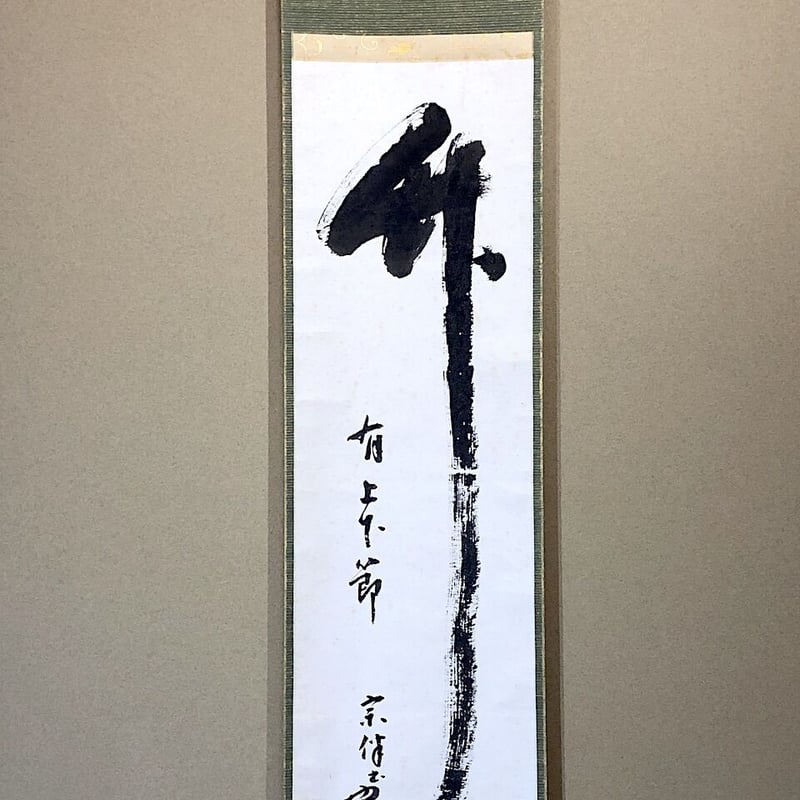 竹
有上下節
宗